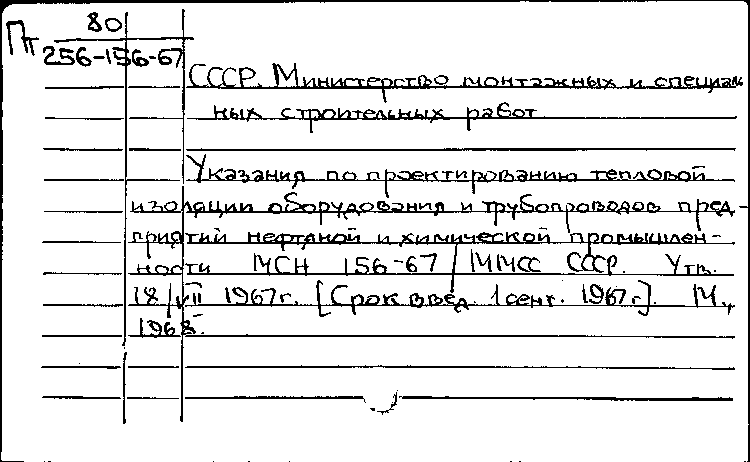 Пт 80
256-156-67
СССР. Министерство монтажных и специаль
ных строительных работ
Указания по проектированию тепловой
изоляции оборудования и трубопроводов пред-
приятий нефтяной и химической промышлен-
ности МСН 156-67/ММСС СССР. Утв.
18/VII 1967г. [Срок введ. 1 сент. 1967г]. М.,
1968.